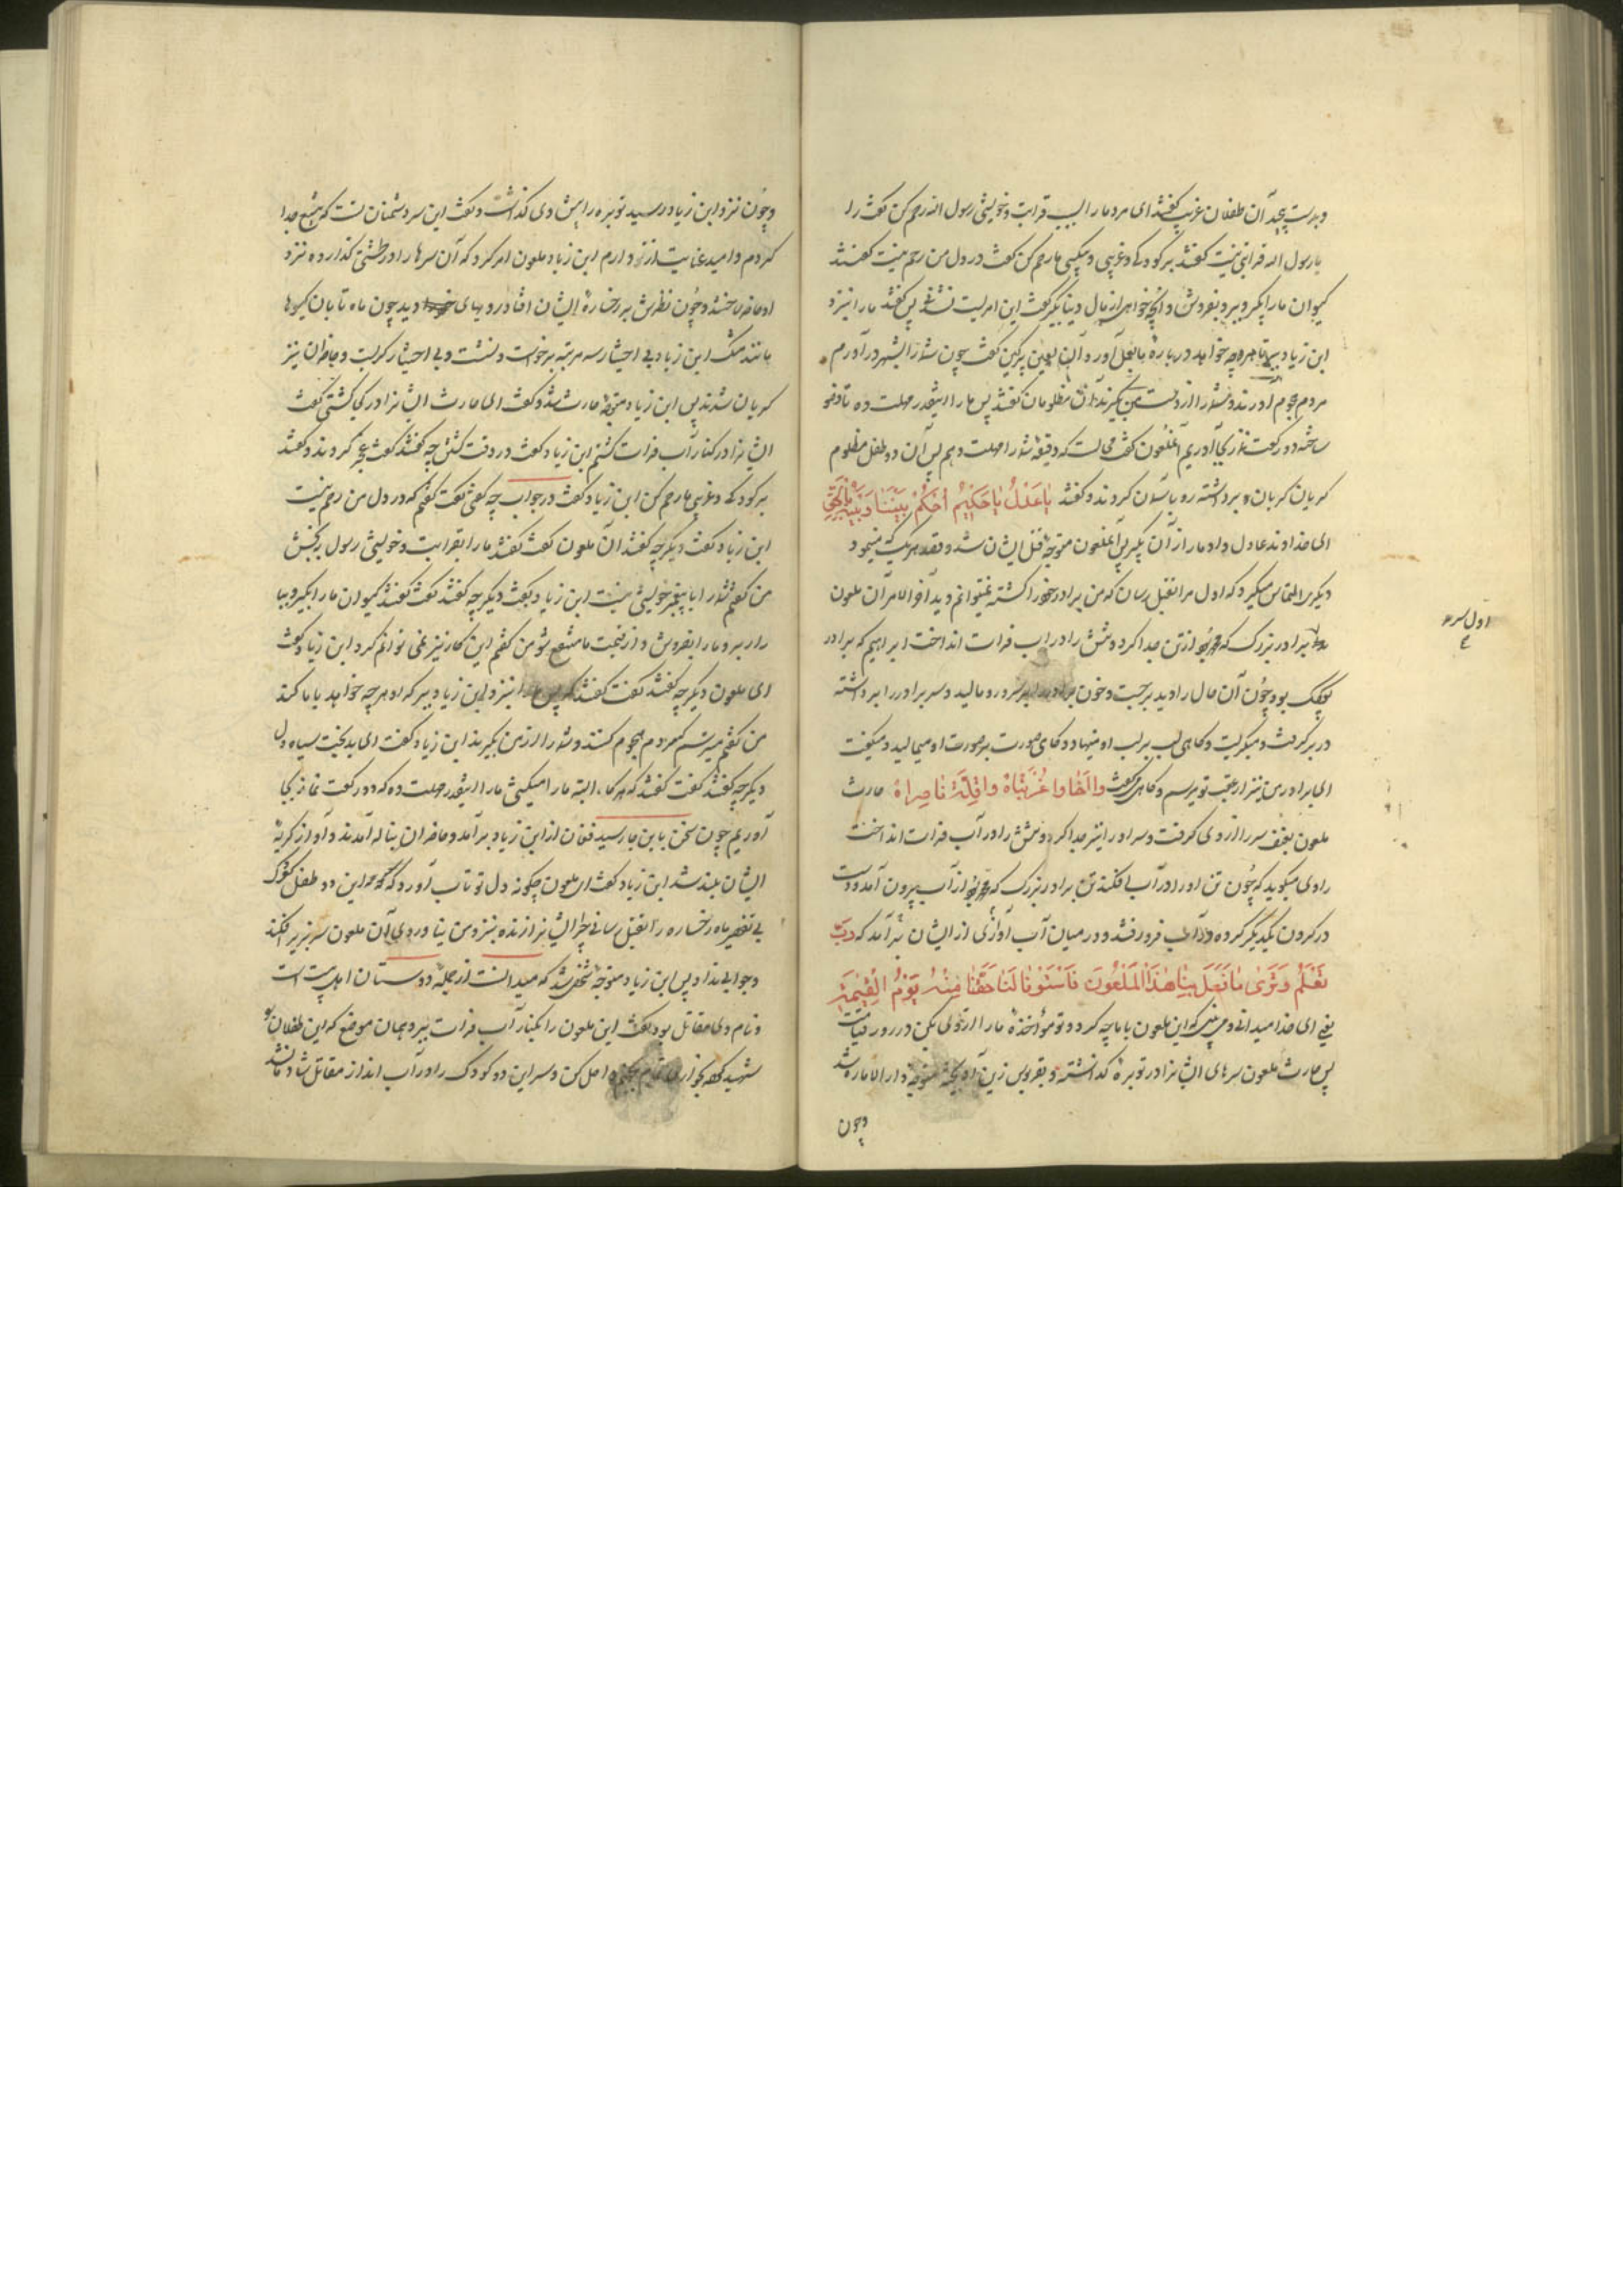 و بدست پیچید آن طفلان غریب گفتند ای مرد ما را بسبب قرابت و خویشی رسول الله رحم کن گفت شما را
با رسول الله قرابتی نیست گفتند بر کودکی و غریبی و بیکسی ما رحم کن گفت در دل من رحم نیست گفتند
کیوان ما را بگیر و ببر و بفروش و آنچه خواهی از مال دنیا بگیر گفت این امریست نشدنی پس گفتند ما را نیز و
ابن زیاد ببر تا هر چه خواهد درباره ما بعمل آورد آن لعین پرکین گفت چون شما را بشهر در آورم
مردم هجوم آورند و شما را از دست من بگیرند آن مظلومان گفتند پس ما را اینقدر مهلت ده تا وضو
ساخته دو رکعت نماز بجا آوریم آنملعون گفت محالست که دقیقه شما را مهلت دهم پس آن دو طفل مظلوم
گریان گریان برداشته رو بآسمان کردند و گفتند یا عدل یا حکیم احکم بیننا و بینه بالحق
ای خداوند عادل داد ما را از آن بگیر پس آنملعون متوجه قتل ایشان شد و قصد هر یک که مینمود
دیگری التماس میکرد که اول مرا بقتل رسان که من برادر خود را کشته نمیتوانم دید آخر الامر آن ملعون
سر برادر بزرگ که محمد بود از تن جدا کرد و تنش را در آب فرات انداخت ابراهیم که برادر
کوچک بود چون آن حال را دید برجست و خون برادر را بر سر و رو مالید و سر برادر را برداشته
در بر گرفت و میگریست و گاهی لب بر لب او مینهاد و گاهی صورت بر صورت او میمالید و میگفت
ای برادر من نیز از عقب تو میرسم و گاهی میگفت وا لهفا وا غربتاه وا قلة ناصراه حارث
ملعون بعنف سر را از وی گرفت و سر او را نیز جدا کرد و تنش را در آب فرات انداخت
راوی میگوید که چون تن او را در آب افکند تن برادر بزرگ که محمد بود از آب بیرون آمد و دست
در گردن یکدیگر کرده در آب فرو رفتند و در میان آب آوازی از ایشان برآمد که رب
تعلم و تری ما فعل بنا هذا الملعون فاستوف لنا حقنا منه یوم القیمة
یعنی ای خدا میدانی و می بینی که این ملعون با ما چه کرد و تو مؤاخذه ما را از وی بکن در روز قیامت
پس حارث ملعون سرهای ایشانرا در توبره گذاشته و بقربوس زین آویخته متوجه دار الاماره شد
و چون
اول سر
و چون نزد ابن زیاد رسید توبره را پیش وی گذاشت و گفت این سر دشمنان تست که بتیغ جدا
کردم و امید عنایت از تو دارم ابن زیاد ملعون امر کرد که آن سرها را در طشتی گذارده نزد
او حاضر ساختند و چون نظرش بر رخساره ایشان افتاد رویهای دید چون ماه تابان گیسوها
مانند مشک ابن زیاد بی اختیار سه مرتبه برخواست و نشست و بی اختیار گریست و حاضران نیز
گریان شدند پس ابن زیاد متوجه حارث شد و گفت ای حارث ایشانرا در کجا کشتی گفت
ایشانرا در کنار آب فرات کشتم ابن زیاد گفت در وقت کشتن چه گفتند گفت عجز کردند و گفتند
بر کودکی و غریبی ما رحم کن ابن زیاد گفت در جواب چه گفتی گفت گفتم که در دل من رحم نیست
ابن زیاد گفت دیگر چه گفتند آن ملعون گفت گفتند ما را بقرابت و خویشی رسول ببخش
من گفتم شما را با پیغمبر خویشی نیست ابن زیاد گفت دیگر چه گفتند گفت گفتند کیوان ما را بگیر و ببازار
ببر و ما را بفروش و از قیمت ما منتفع شو من گفتم این کار نیز نمی توانم کرد ابن زیاد گفت
ای ملعون دیگر چه گفتند گفت گفتند پس ما را نیز و ابن زیاد ببر که او هر چه خواهد با ما کند
من گفتم میترسم که مردم هجوم کنند و شما را از من بگیرند ابن زیاد گفت ای بدبخت سیاه دل
دیگر چه گفتند گفت گفتند که هرگاه البته ما را میکشی ما را اینقدر مهلت ده که دو رکعت نماز بجا
آوریم چون سخن باین جا رسید فغان از ابن زیاد برآمد و حاضران بناله آمدند و آواز گریه
ایشان بلند شد ابن زیاد گفت ای ملعون چگونه دل تو تاب آورد که این دو طفل کوچک
بی تقصیر ماه رخساره را بقتل رسانی چرا ایشانرا زنده بنزد من نیاوردی آن ملعون سر بزیر افکند
و جوابی نداد پس ابن زیاد متوجه شخصی شد که میدانست از جمله دوستان اهل بیت است
و نام وی مقاتل بود گفت این ملعون را بکنار آب فرات ببر و بهمان موضع که این طفلان را
شهید کرده بخواری تمام بجهنم واصل کن و سر این دو کودک را در آب انداز مقاتل شاد شد